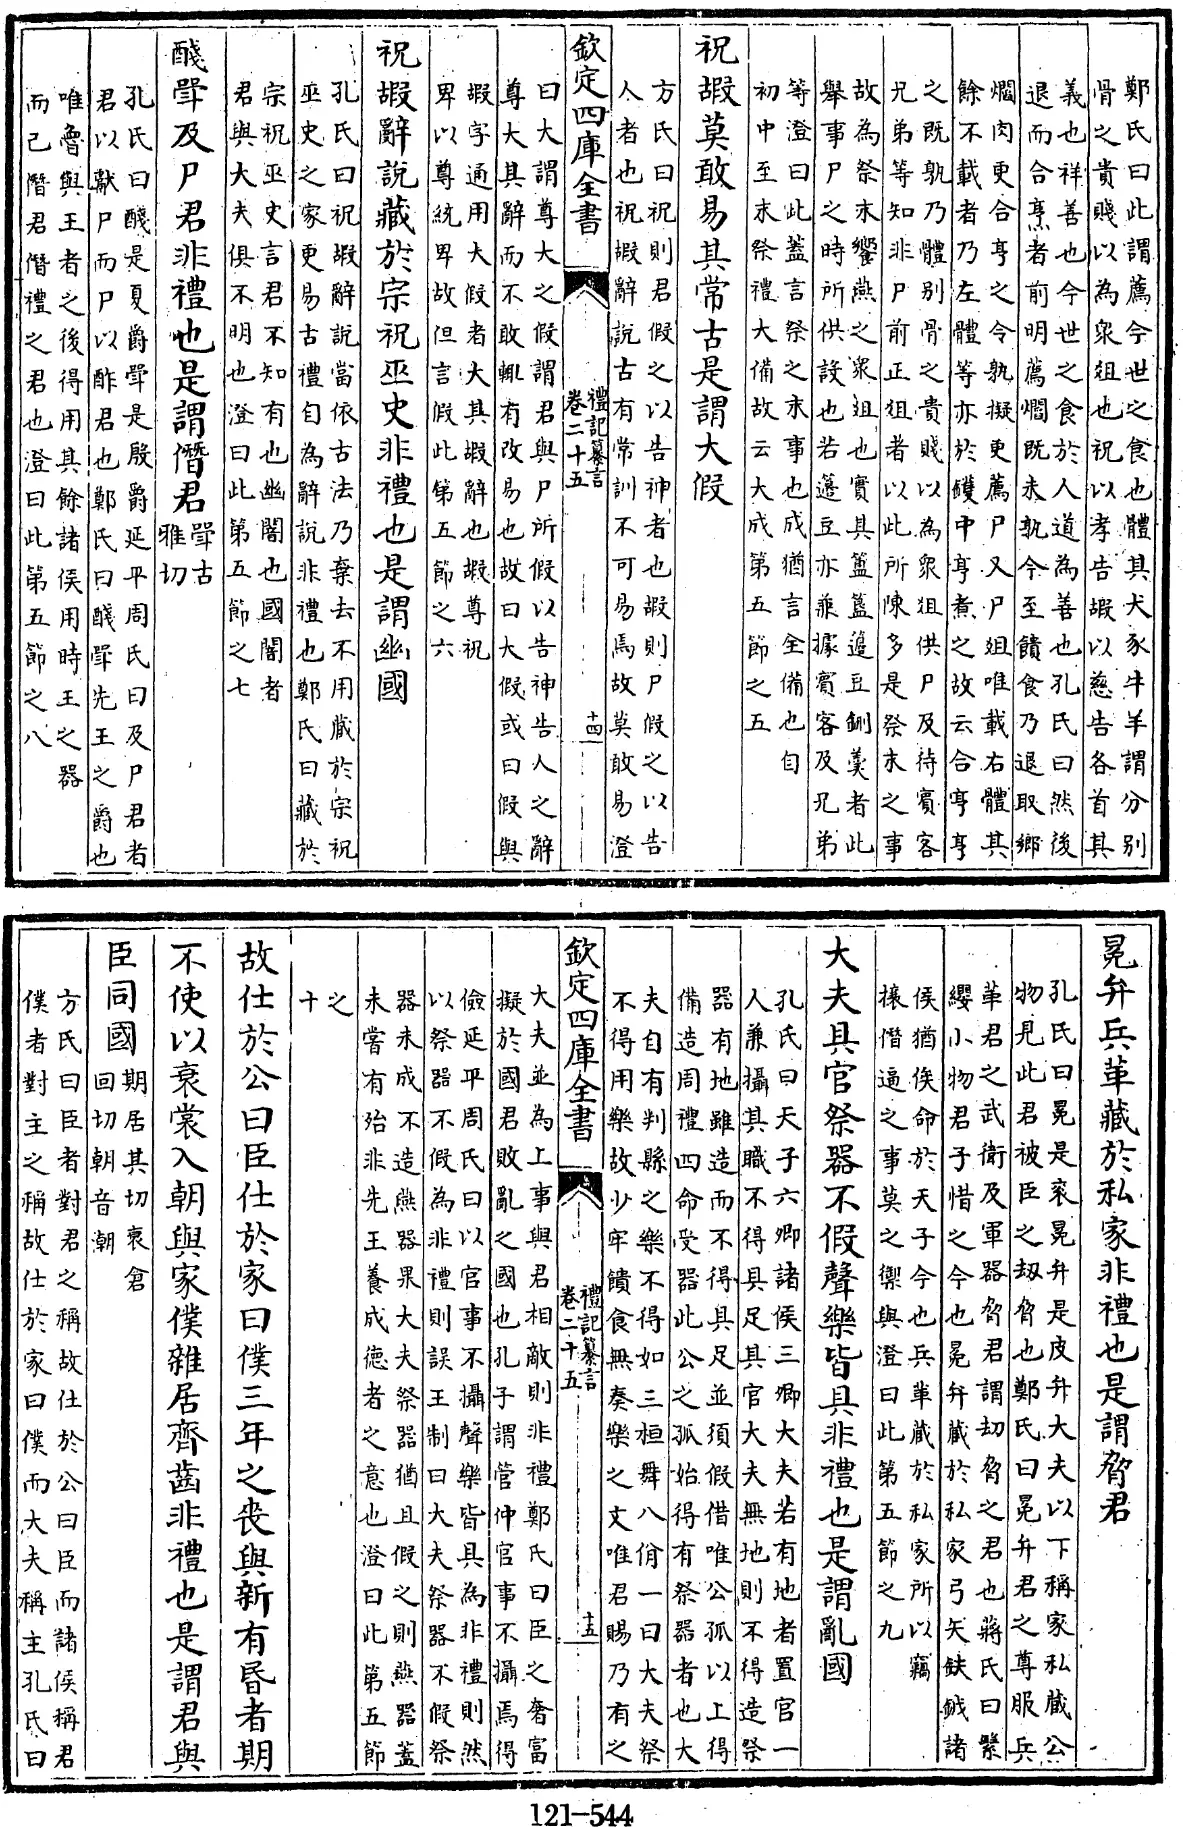 鄭氏曰此謂薦今世之食也體其犬豕牛羊謂分别
骨之貴賤以為衆俎也祝以孝告嘏以慈告各首其
義也祥善也今世之食於人道為善也孔氏曰然後
退而合亨者前明薦爓既未孰今至饋食乃退取鄉
爓肉更合亨之令孰擬更薦尸又尸俎唯載右體其
餘不載者乃左體等亦於鑊中亨煮之故云合亨亨
之既孰乃體别骨之貴賤以為衆俎供尸及待賓客
兄弟等知非尸前正俎者以此所陳多是祭末之事
故為祭末饗燕之衆俎也實其簠簋籩豆鉶羮者此
舉事尸之時所供設也若籩豆亦兼據賓客及兄弟
等澄曰此蓋言祭之末事也成猶言全備也自
初中至末祭禮大備故云大成第五節之五
祝嘏莫敢易其常古是謂大假
方氏曰祝則君假之以告神者也嘏則尸假之以告
人者也祝嘏辭說古有常訓不可易焉故莫敢易澄
欽定四庫全書
禮記纂言
卷二十五
十四
曰大謂尊大之假謂君與尸所假以告神告人之辭
尊大其辭而不敢輒有改易也故曰大假或曰假與
嘏字通用大假者大其嘏辭也嘏尊祝
卑以尊統卑故但言假此第五節之六
祝嘏辭說藏於宗祝巫史非禮也是謂幽國
孔氏曰祝嘏辭說當依古法乃棄去不用藏於宗祝
巫史之家更易古禮自為辭說非禮也鄭氏曰藏於
宗祝巫史言君不知有也幽闇也國闇者
君與大夫俱不明也澄曰此第五節之七
醆斝及尸君非禮也是謂僭君
斝古
雅切
孔氏曰醆是夏爵斝是殷爵延平周氏曰及尸君者
君以獻尸而尸以酢君也鄭氏曰醆斝先王之爵也
唯魯與王者之後得用其餘諸侯用時王之器
而已僭君僭禮之君也澄曰此第五節之八
冕弁兵革藏於私家非禮也是謂脅君
孔氏曰冕是衮冕弁是皮弁大夫以下稱家私藏公
物見此君被臣之刼脅也鄭氏曰冕弁君之尊服兵
革君之武衛及軍器脅君謂刼脅之君也蔣氏曰繁
纓小物君子惜之今也冕弁藏於私家弓矢鈇鉞諸
侯猶俟命於天子今也兵革藏於私家所以竊
攘僭逼之事莫之禦與澄曰此第五節之九
大夫具官祭器不假聲樂皆具非禮也是謂亂國
孔氏曰天子六卿諸侯三卿大夫若有地者置官一
人兼攝其職不得具足其官大夫無地則不得造祭
器有地雖造而不得具足並須假借唯公孤以上得
備造周禮四命受器此公之孤始得有祭器者也大
夫自有判縣之樂不得如三桓舞八佾一曰大夫祭
不得用樂故少牢饋食無奏樂之文唯君賜乃有之
欽定四庫全書
禮記纂言
卷二十五
十五
大夫並為上事與君相敵則非禮鄭氏曰臣之奢富
擬於國君敗亂之國也孔子謂管仲官事不攝焉得
儉延平周氏曰以官事不攝聲樂皆具為非禮則然
以祭器不假為非禮則誤王制曰大夫祭器不假祭
器未成不造燕器果大夫祭器猶且假之則燕器蓋
未嘗有殆非先王養成德者之意也澄曰此第五節
之
十
故仕於公曰臣仕於家曰僕三年之喪與新有昏者期
不使以衰裳入朝與家僕雜居齊齒非禮也是謂君與
臣同國
期居其切衰倉
回切朝音潮
方氏曰臣者對君之稱故仕於公曰臣而諸侯稱君
僕者對主之稱故仕於家曰僕而大夫稱主孔氏曰
121-544